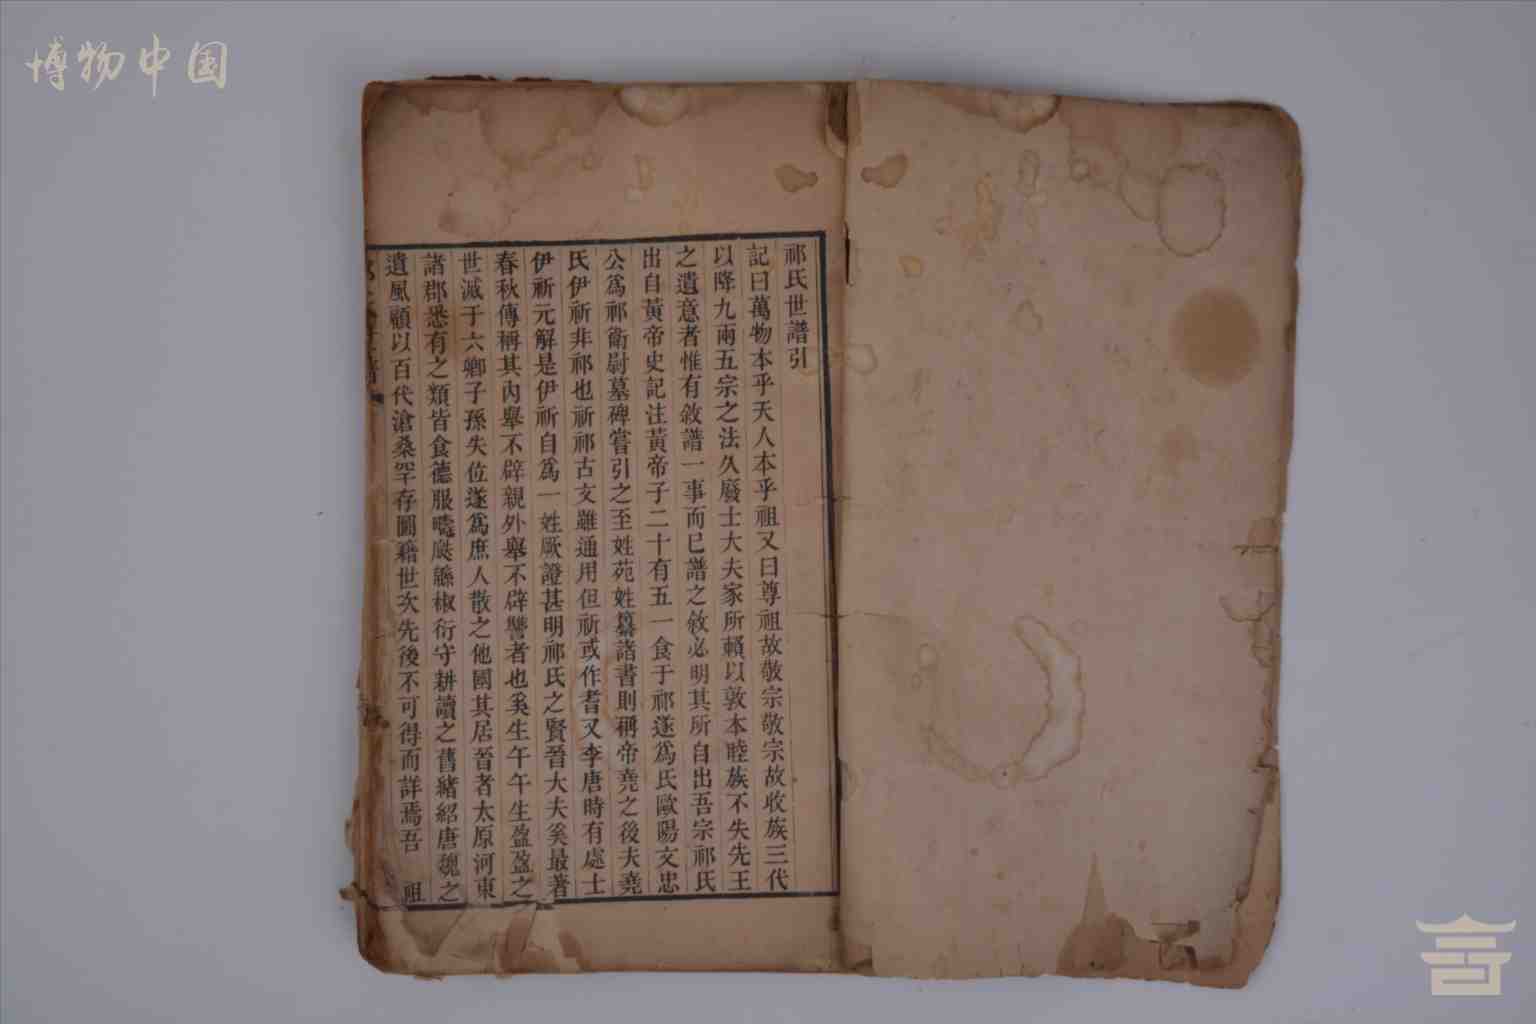 博物中国
祁氏世譜引
記曰萬物本乎天人本乎祖又曰尊祖故敬宗敬宗故收族三代
以降九兩五宗之法久廢士大夫家所賴以敦本睦族不失先王
之遺意者惟有敘譜一事而已譜之敘必明其所自出吾宗祁氏
出自黃帝史記注黃帝子二十有五一食于祁遂爲氏歐陽文忠
公爲祁衛尉墓碑嘗引之至姓苑姓纂諸書則稱帝堯之後夫堯
氏伊祈非祁也祈祁古文雖通用但祈或作耆又李唐時有處士
伊祈元解是伊祈自爲一姓厥證甚明祁氏之賢晉大夫奚最著
春秋傳稱其內舉不辟親外舉不辟讐者也奚生午午生盈盈之
世滅于六卿子孫失位遂爲庶人散之他國其居晉者太原河東
諸郡悉有之類皆食德服疇瓞緜椒衍守耕讀之舊緒紹唐魏之
遺風顧以百代滄桑罕存圖籍世次先後不可得而詳焉吾 祖